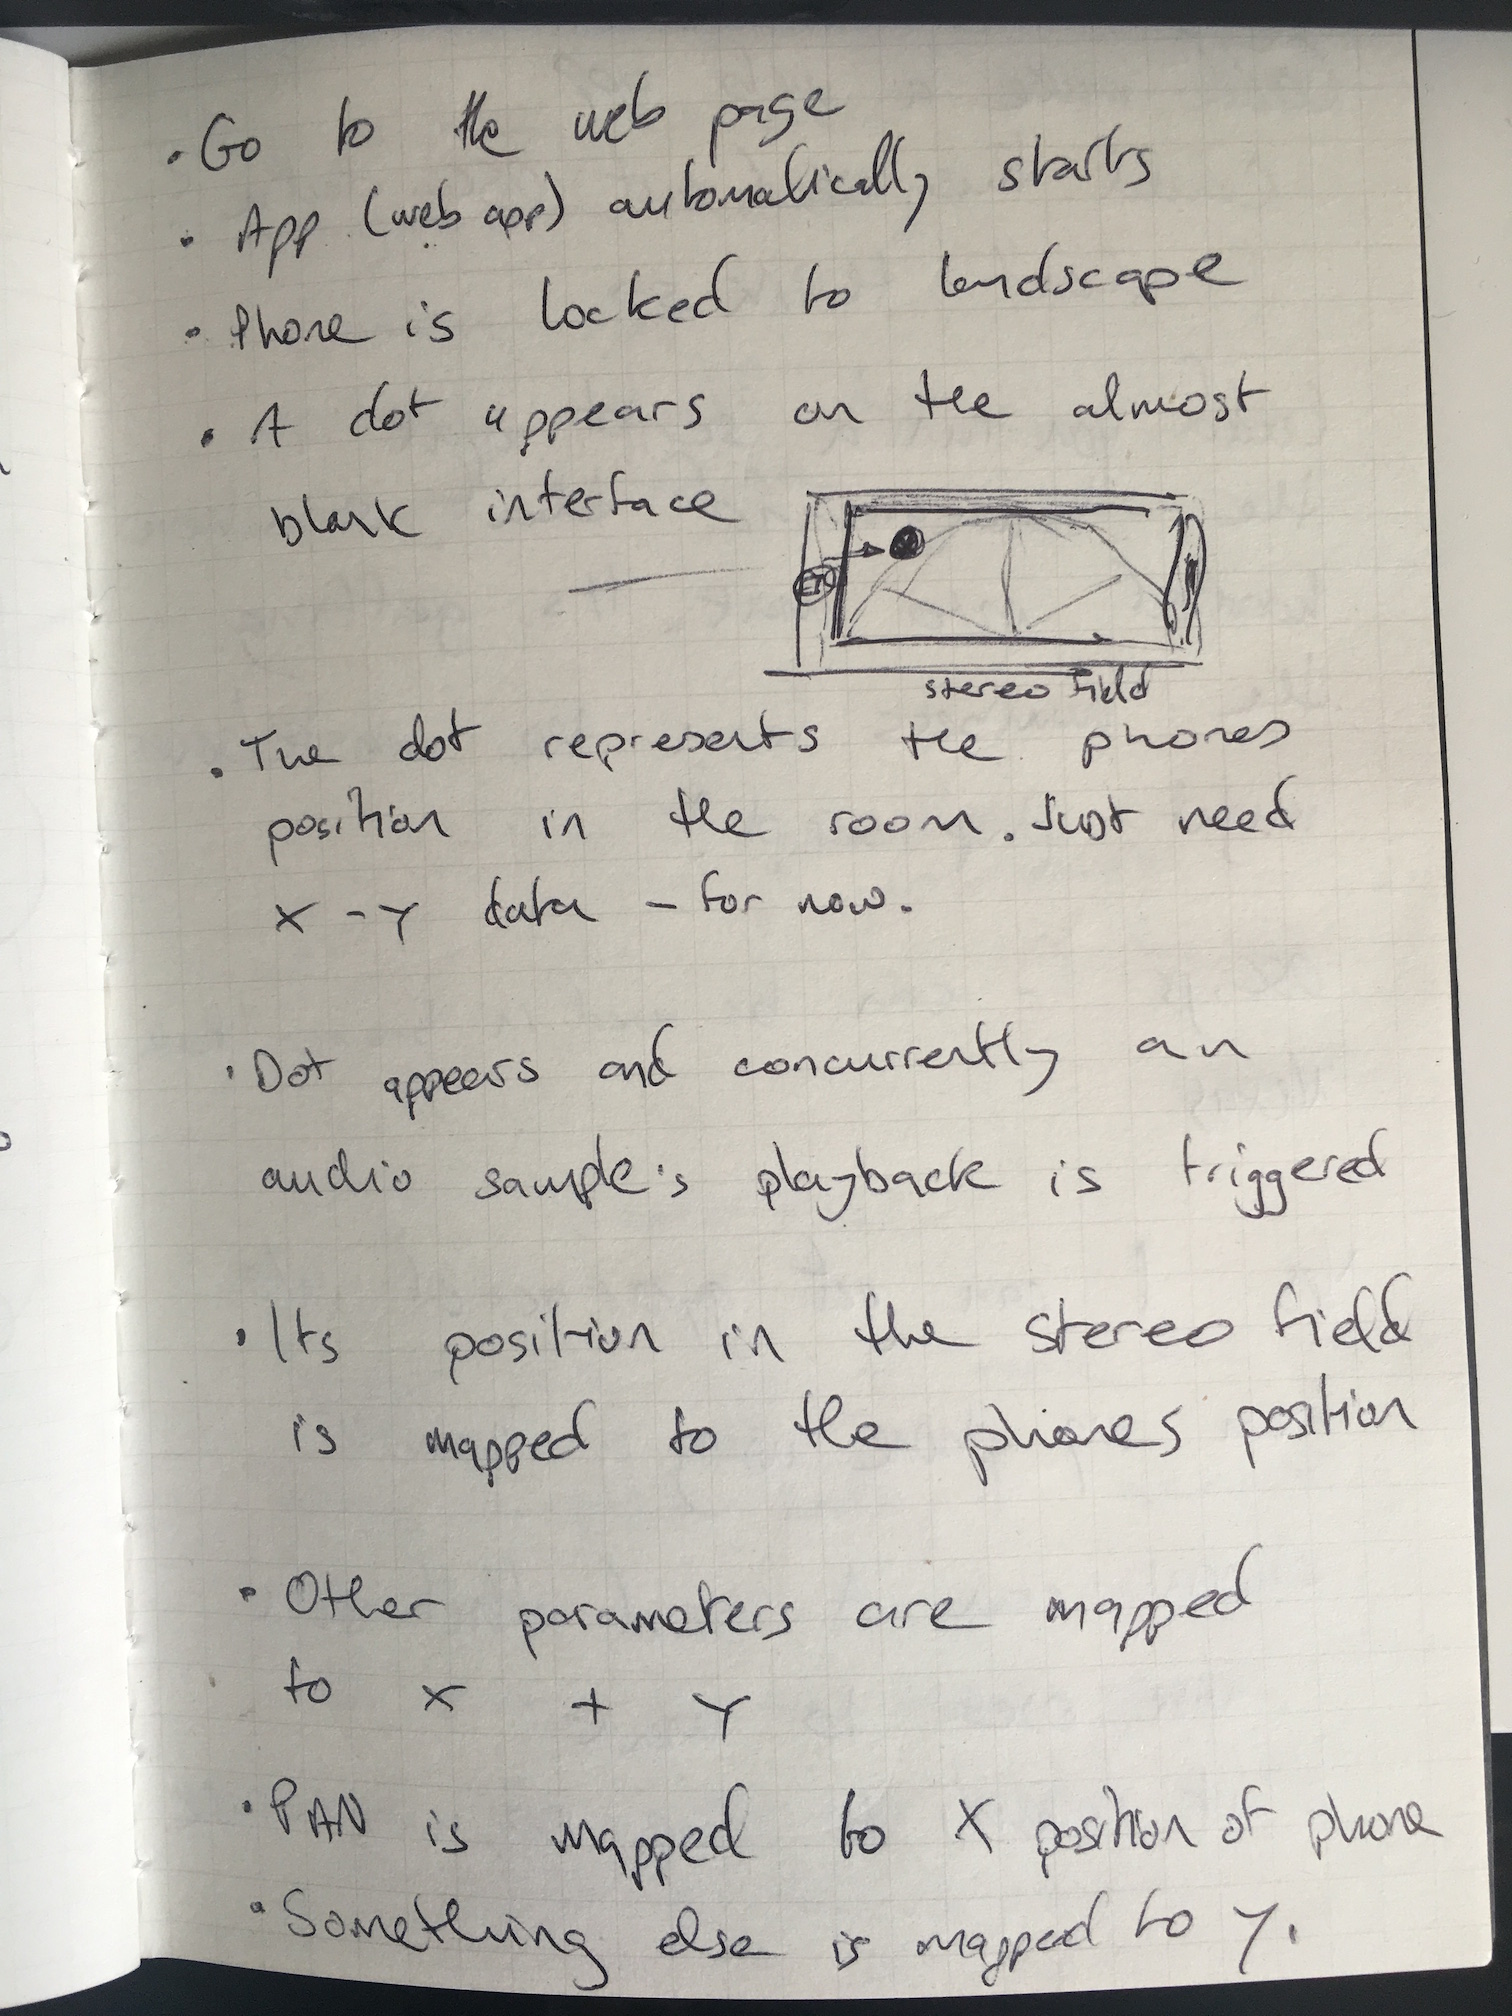 · Go to the web page
· App (web app) automatically starts
· Phone is locked to landscape
· A dot appears on the almost
blank interface
stereo field
· The dot represents the phones
position in the room. Just need
X - Y data - for now.
· Dot appears and concurrently an
audio sample's playback is triggered
· Its position in the stereo field
is mapped to the phones position
· Other parameters are mapped
to x + Y
· PAN is mapped to X position of phone
· Something else is mapped to Y.